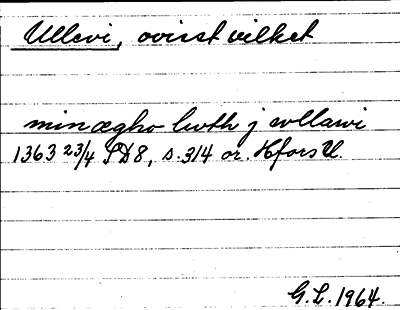 Ullevi, ovisst vilket
min ægho lwth j wllawi
1363 23/4 SD8, s. 314 or. Hfors U.
G.L. 1964.